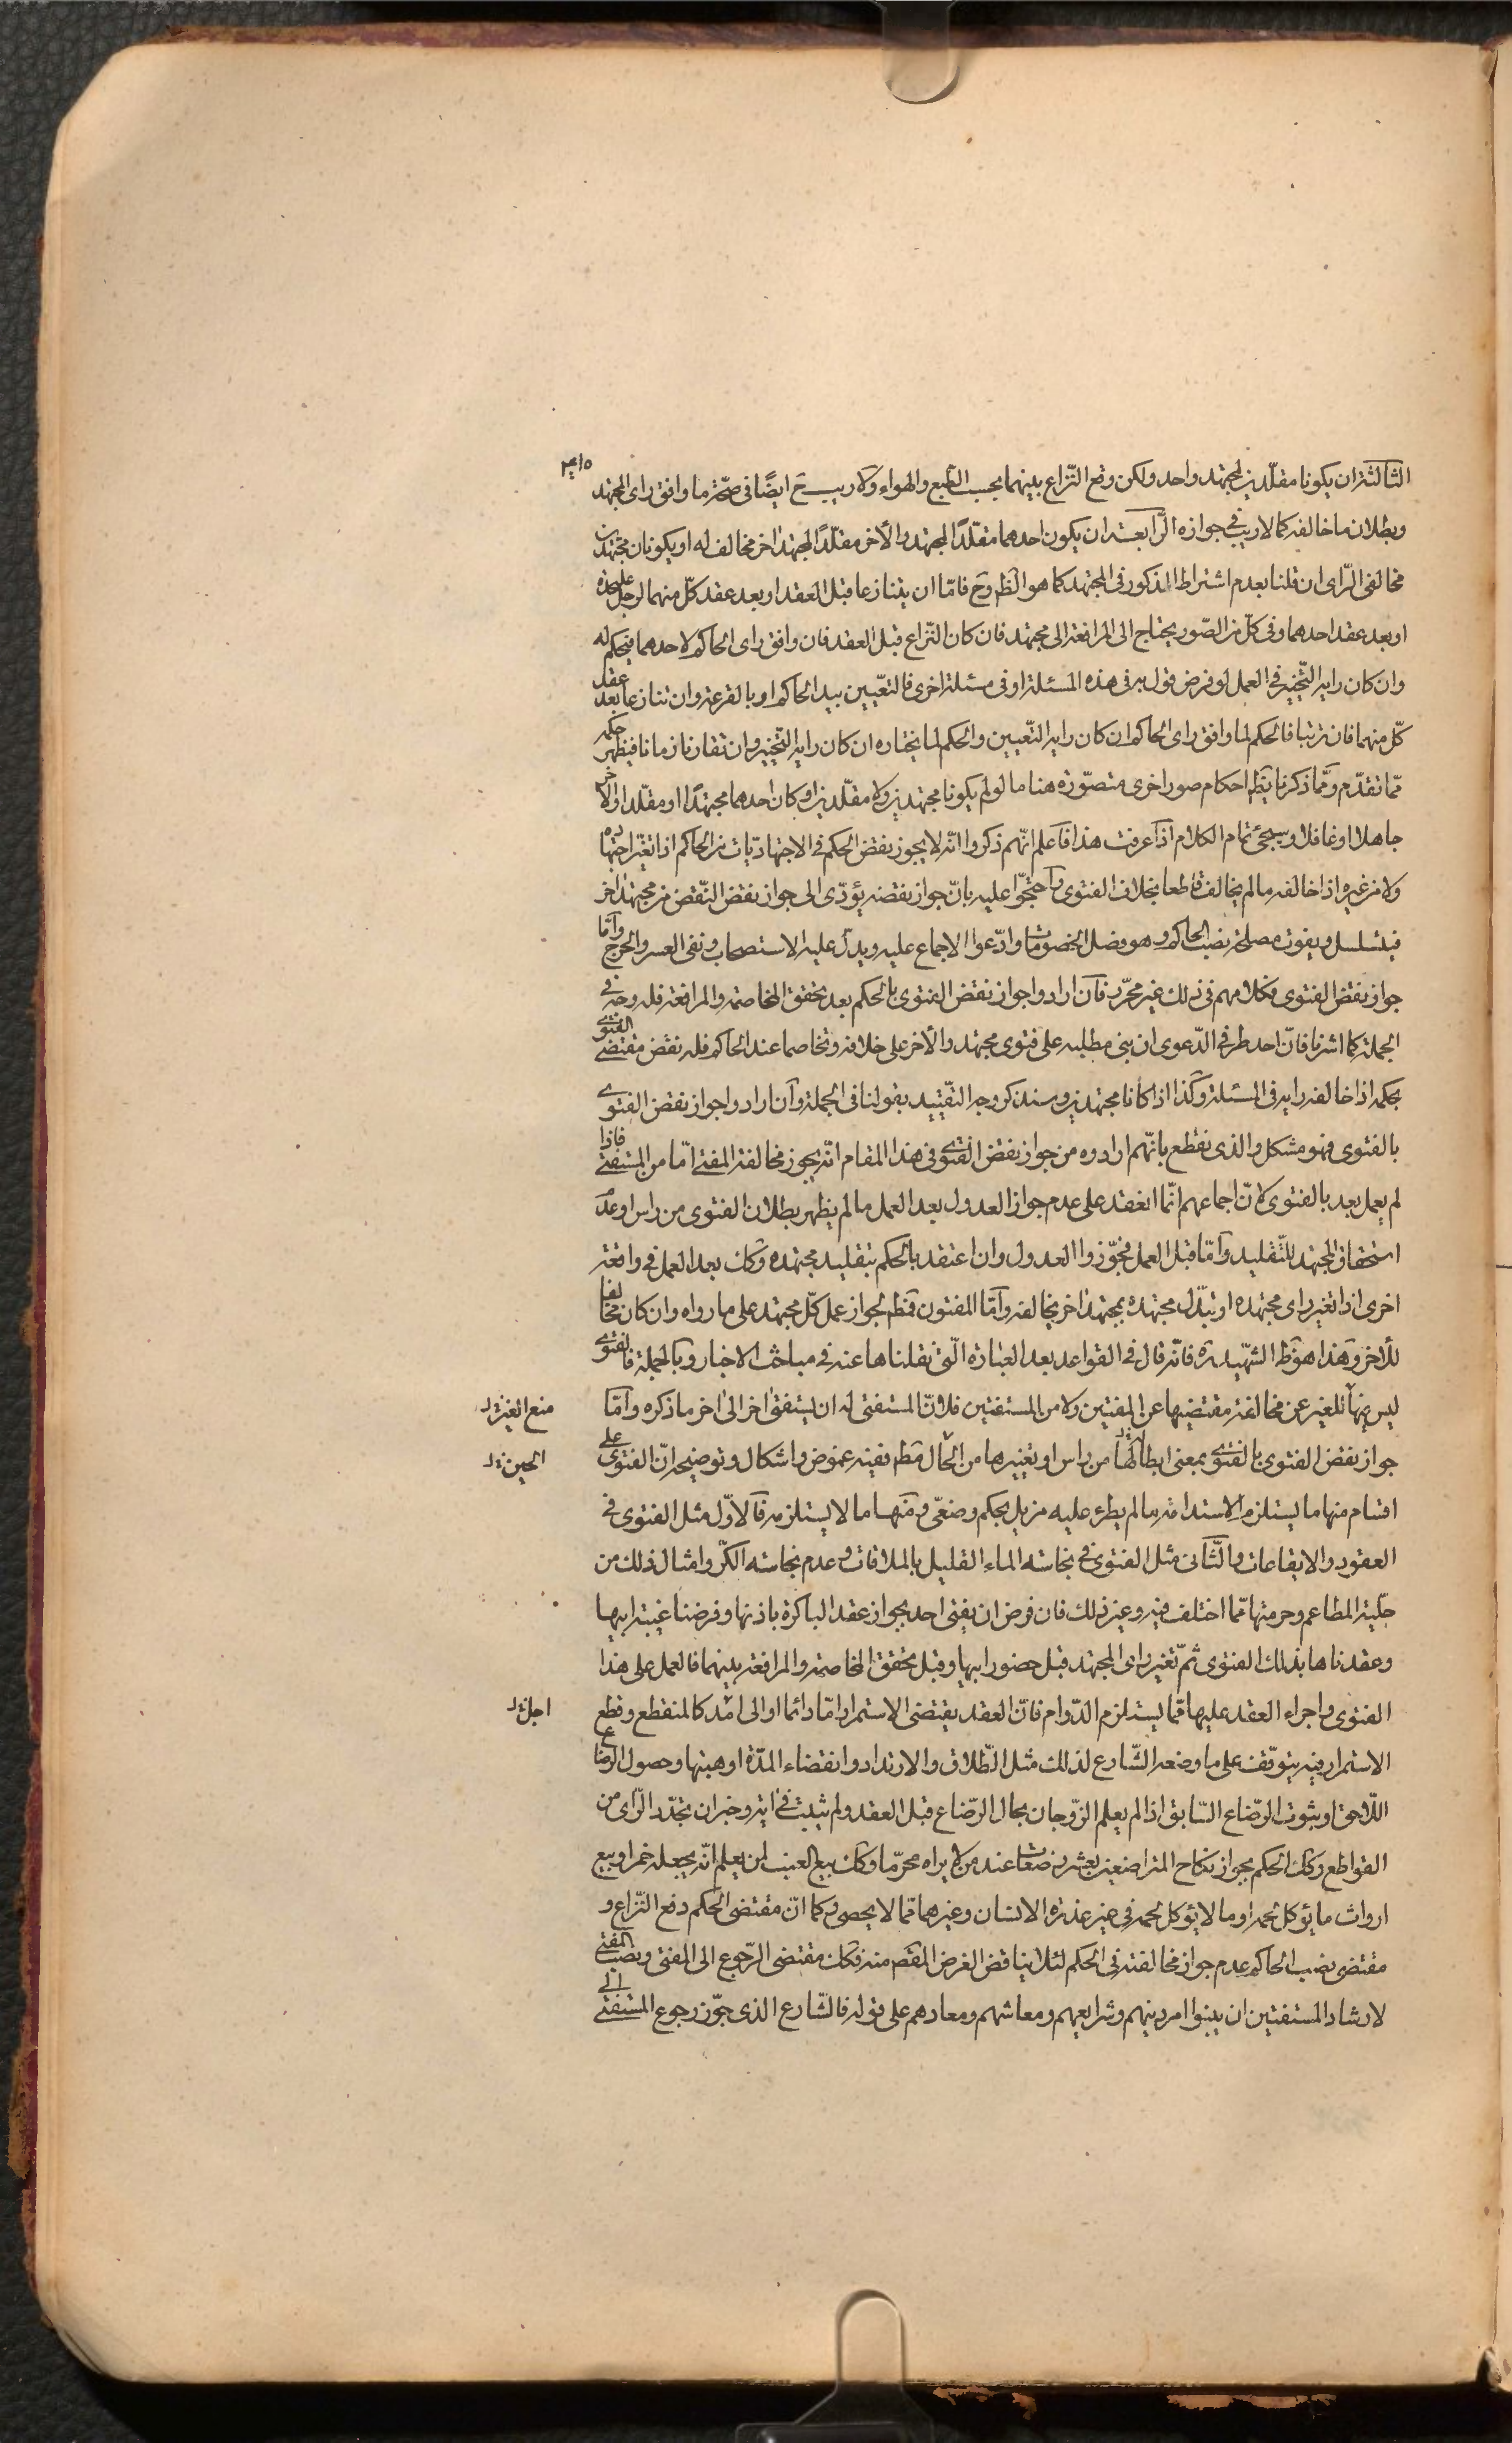 ٤١٥
الثالثة ان يكونا مقلّدين لمجتهد واحد ولكن وقع النّزاع بينهما بحسب الطّبع والهواء ولا ريب ح ايضًا فى صحّة ما وافق راى المجتهد
وبطلان ما خالفه كما لا ريب فى جوازه الرّابعة ان يكون احدهما مقلّدًا لمجتهد والأخر مقلّدًا لمجتهد اخر مخالف له او يكونان مجتهدين
مخالفى الرّاى ان قلنا بعدم اشتراط الذكور فى المجتهد كما هو الظم وح فامّا ان يتنازعا قبل العقد او بعد عقد كلّ منهما لرجل علىحدة
او بعد عقد احدهما وفى كلّ من الصّور يحتاج الى المرافعة الى مجتهد فان كان النّزاع قبل العقد فان وافق راى الحاكم لاحدهما فيحكم له
وان كان رايه التّخيير فى العمل لو فرض قول به فى هذه المسئلة او فى مسئلة اخرى فالتعّيين بيد الحاكم او بالقرعة وان تنازعا بعد عقد
كلّ منهما فان ترتبا فالحكم لما وافق راى الحاكم ان كان رايه التّعيين والحكم لما يختاره ان كان رايه التّخيير وان تقارنا زمانا فيظهر حكمه
ممّا تقدّم وممّا ذكرنا يظهر احكام صور اخرى متصوّرة هنا ما لو لم يكونا مجتهدين ولا مقلّدين او كان احدهما مجتهدًا او مقلّدا والأخر
جاهلا او غافلا وسيجئ تمام الكلام اذا عرفت هذا فاعلم انّهم ذكروا انّه لا يجوز نقض الحكم فى الاجتهاديّات من الحاكم اذا تغيّر اجتهاده
ولا من غيره اذا خالفه ما لم يخالف قاطعا بخلاف الفتوى واحتجّوا عليه بانّ جواز نقضه يؤدّى الى جواز نقض النّقض من مجتهد اخر
فيتسلسل ويفوت مصلحة نصب الحاكم وهو فصل الخصومات وادّعوا الاجماع عليه ويدلّ عليه الاستصحاب ونفى العسر والحرج وامّا
جواز نقض الفتوى فكلامهم فى ذلك غير محرّر فان ارادوا جواز نقض الفتوى بالحكم بعد تحقق المخاصمة والمرافعة فله وجه فى
الجملة كما اشرنا فانّ احد طرفى الدّعوى ان بنى مطلبه على فتوى مجتهد والأخر على خلافه وتخاصما عند الحاكم فله نقض مقتضى الفتوى
بحكمه اذا خالف رايه فى المسئلة وكذا اذا كانا مجتهدين وسنذكر وجه التقّييد بقولنا فى الجملة وان ارادوا جواز نقض الفتوى
بالفتوى فهو مشكل والذى نقطع بانّهم ارادوه من جواز نقض الفتوى فى هذا المقام انّه يجوز مخالفة المفتى امّا من المستفتى فاذا
لم يعمل بعد بالفتوى لانّ اجماعهم انّما انعقد على عدم جواز العدول بعد العمل ما لم يظهر بطلان الفتوى من راس او عدم
استحقاق المجتهد للتّقليد وامّا قبل العمل فجوّزوا العدول وان اعتقد بالحكم بتقليد مجتهده وكذا بعد العمل فى واقعة
اخرى اذا تغير راى مجتهده او تبّدل مجتهده بمجتهد اخر يخالفه وامّا المفتون فظم لجواز عمل كلّ مجتهد على ما رواه وان كان مخالفا
للأخر وهذا هو ظ الشّهيد ره فانّه قال فى القواعد بعد العبارة الّتى نقلناها عنه فى مباحث الاخبار وبالجملة فالفتوى
ليس فيها للغير عن مخالفة مقتضيها عن المفتين ولا من المستفتين فلانّ المستفتى له ان يستفتى اخر الى اخر ما ذكره وامّا
منع الغير
جواز نقض الفتوى بالفتوى بمعنى ابطالها من راس او تغييرها من الحال فظم ففيه غموض واشكال وتوضيحه انّ الفتوى على
الحين
اقسام منها ما يستلزم الاستدامة ما لم يطرء عليه مزيل بحكم وضعّى ومنها ما لا يستلزمه فالاوّل مثل الفتوى فى
العقود والايقاعات والثّانى مثل الفتوى فى نجاسة الماء القليل بالملاقات وعدم نجاسة الكرّ وامثال ذلك من
حليّة المطاعم وحرمتها ممّا اختلف فيه وغير ذلك فان فرض ان يفتى احد بجواز عقد الباكرة باذنها وفرضنا غيبة ابيها
وعقدناها بذلك الفتوى ثمّ تغير راى المجتهد قبل حضور ابيها وقبل تحقق المخاصمة والمرافعة بينهما فالعمل على هذا
الفتوى واجراء العقد عليها ممّا يستلزم الدّوام فانّ العقد يقتضى الاستمرار امّا دائما او الى امد كالمنقطع وقطع
اجل
الاستمرار فيه يتوقّف على ما وضعه الشّارع لذلك مثل الطّلاق والارتداد وانقضاء المدّة او هبتها وحصول الرضاع
اللّاحق او ثبوت الرضّاع السّابق اذا لم يعلم الزّوجان بحال الرضّاع قبل العقد ولم يثبت فى اية وخبر ان تجدّد الرّاى من
القواطع وكذا الحكم بجواز نكاح المتراضعين بعشر رضعات عند من لا يراه محرّما وكذا بيع العنب لمن يعلم انّه يجعله خمرا وبيع
ارواث ما يؤكل لحمه او ما لا يؤكل لحمه فى غير عذرة الانسان وغيرهما ممّا لا يحصى فكما انّ مقتضى الحكم دفع النّزاع و
مقتضى نصب الحاكم عدم جواز مخالفته فى الحكم لئلا يناقض الغرض المقصم منه فكذا مقتضى الرّجوع الى المفتى ونصب المفتى
لارشاد المستفتين ان يبنوا امر دينهم وشرايعهم ومعاشهم ومعادهم على قوله فالشّارع الذى جوّز رجوع المستفتى الى